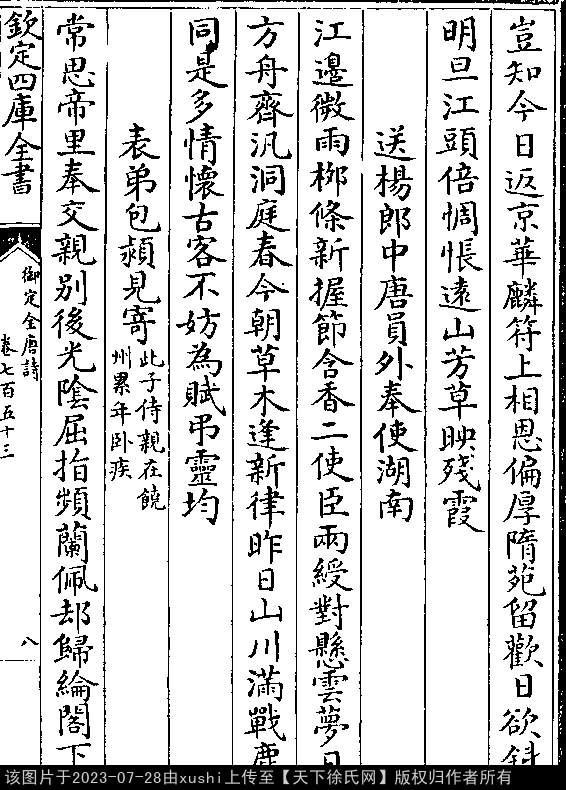 豈知今日返京華麟符上相恩偏厚隋苑留歡日欲斜
明旦江頭倍惆悵遠山芳草映殘霞
送楊郎中唐員外奉使湖南
江邊微雨柳條新握節含香二使臣兩綬對懸雲夢日
方舟齊汎洞庭春今朝草木逢新律昨日山川滿戰塵
同是多情懷古客不妨為賦弔靈均
表弟包頴見寄
此子侍親在饒
州累年卧疾
常思帝里奉交親別後光陰屈指頻蘭佩却歸綸閣下
欽定四庫全書
御定全唐詩
卷七百五十三
八
该图片于2023-07-28由xushi上传至【天下徐氏网】版权归作者所有